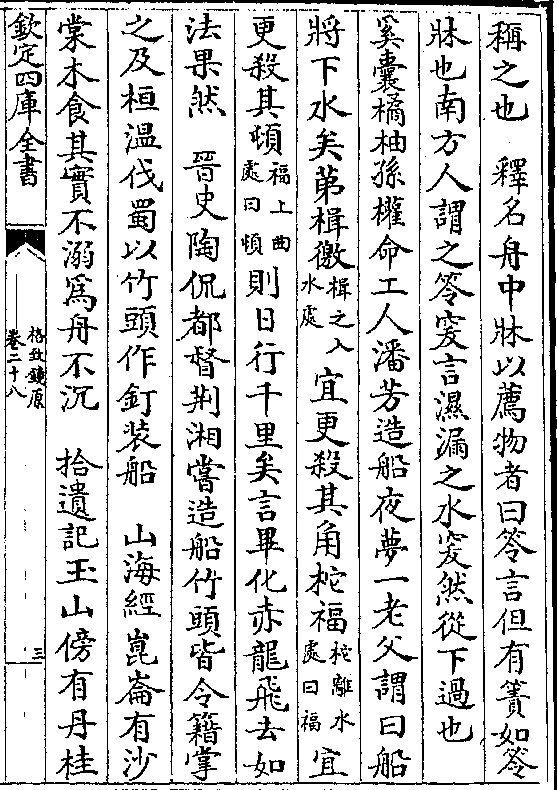 稱之也　釋名舟中牀以薦物者曰笭言但有簀如笭
牀也南方人謂之笭突言濕漏之水突然從下過也
奚囊橘柚孫權命工人潘芳造船夜夢一老父謂曰船
將下水矣第楫徼楫之入水處宜更殺其角柁福柁離水處曰福宜
更殺其頓福上曲處曰頓則日行千里矣言畢化赤龍飛去如
法果然　晉史陶侃都督荆湘嘗造船竹頭皆令籍掌
之及桓溫伐蜀以竹頭作釘裝船　山海經崑崙有沙
棠木食其實不溺爲舟不沉　拾遺記玉山傍有丹桂
欽定四庫全書
格致鏡原
卷二十八
三